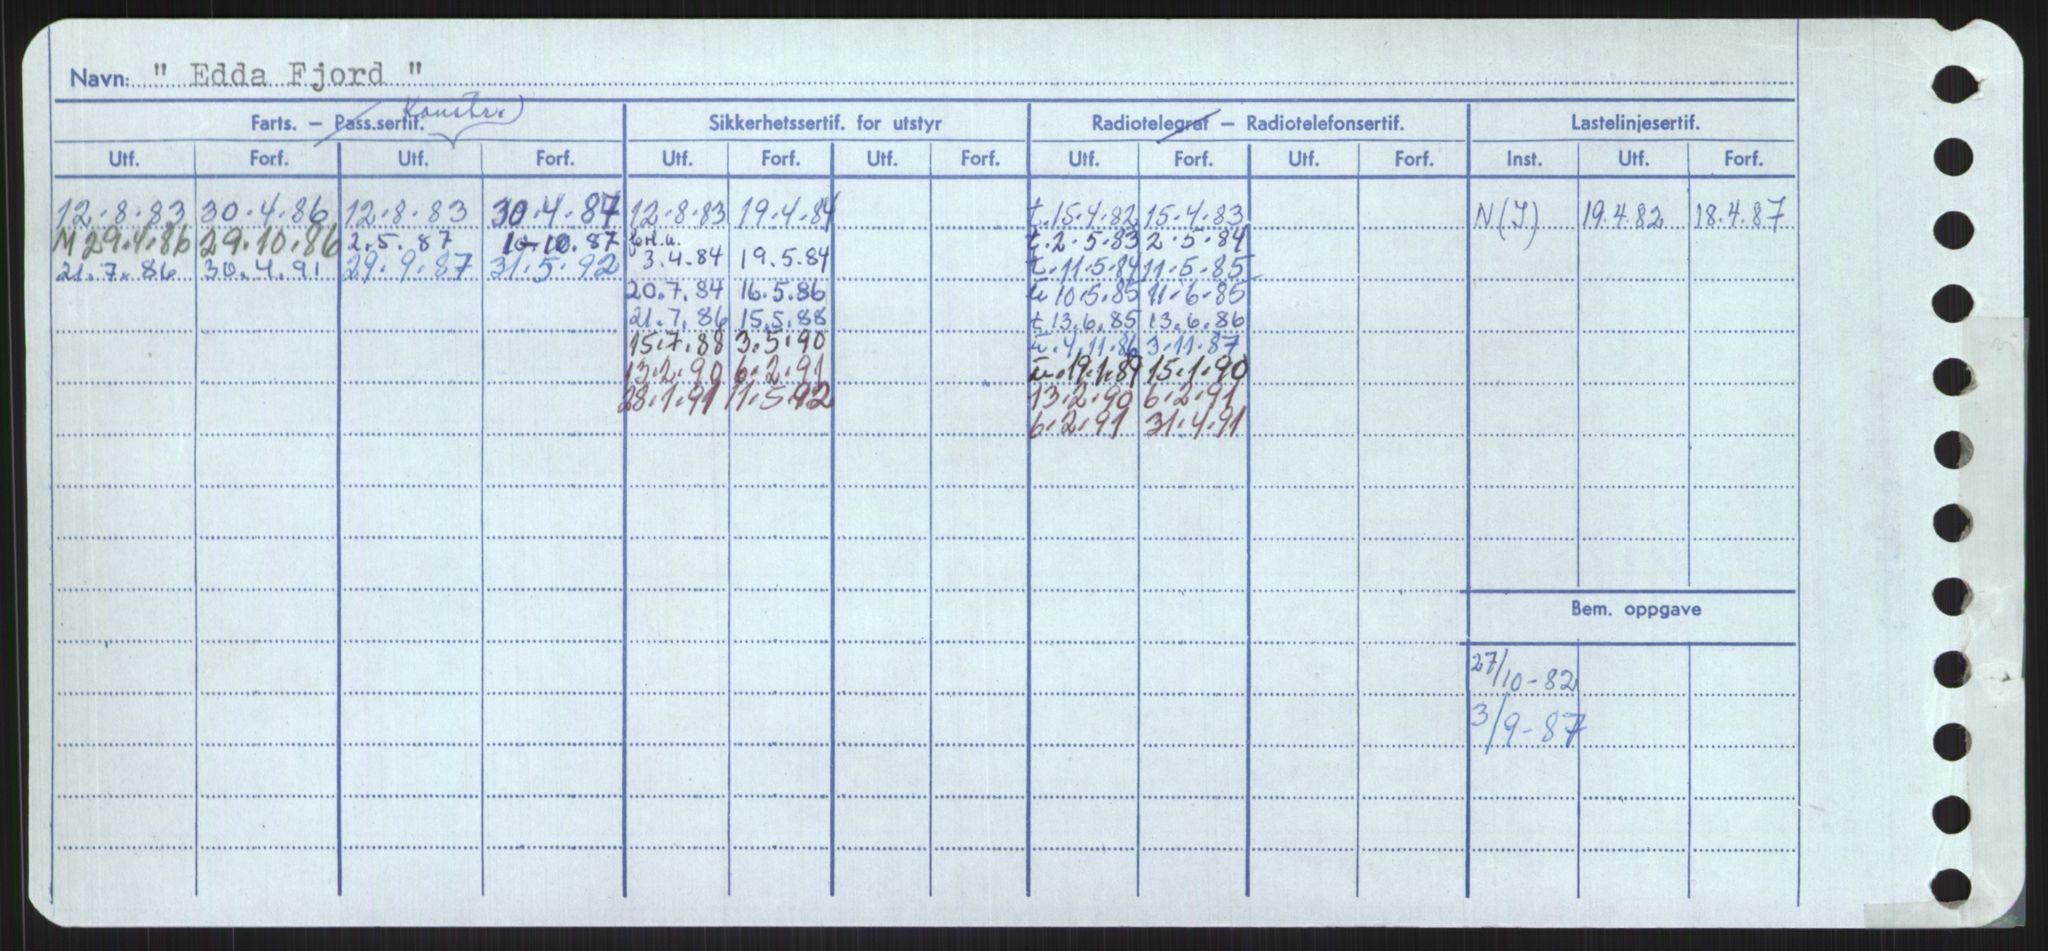 Navn: " Edda Fjord "
Konstr.
Farts. — Pass.sertif. Sikkerhetssertif. for utstyr Radiotelegraf — Radiotelefonsertif. Lastelinjesertif.
Utf. Forf. Utf. Forf. Utf. Forf. Utf. Forf. Utf. Forf. Utf. Forf. Inst. Utf. Forf.
12.8.83 30.4.86 12.8.83 30.4.87 12.8.83 19.4.84 t.15.4.82 15.4.83 N(I) 19.4.82 18.4.87
M 29.4.86 29.10.86 2.5.87 10.10.87 forl.u. t.2.5.83 2.5.84
21.7.86 30.4.91 29.9.87 31.5.92 3.4.84 19.5.84 t.11.5.84 11.5.85
20.7.84 16.5.86 10.5.85 11.6.85
21.7.86 15.5.88 t 13.6.85 13.6.86
15.7.88 3.5.90 4.11.86 3.11.87
13.2.90 6.2.91 19.1.89 15.1.90
28.1.91 11.5.92 13.2.90 6.2.91
6.2.91 31.4.91
Bem. oppgave
27/10-82
3/9-87